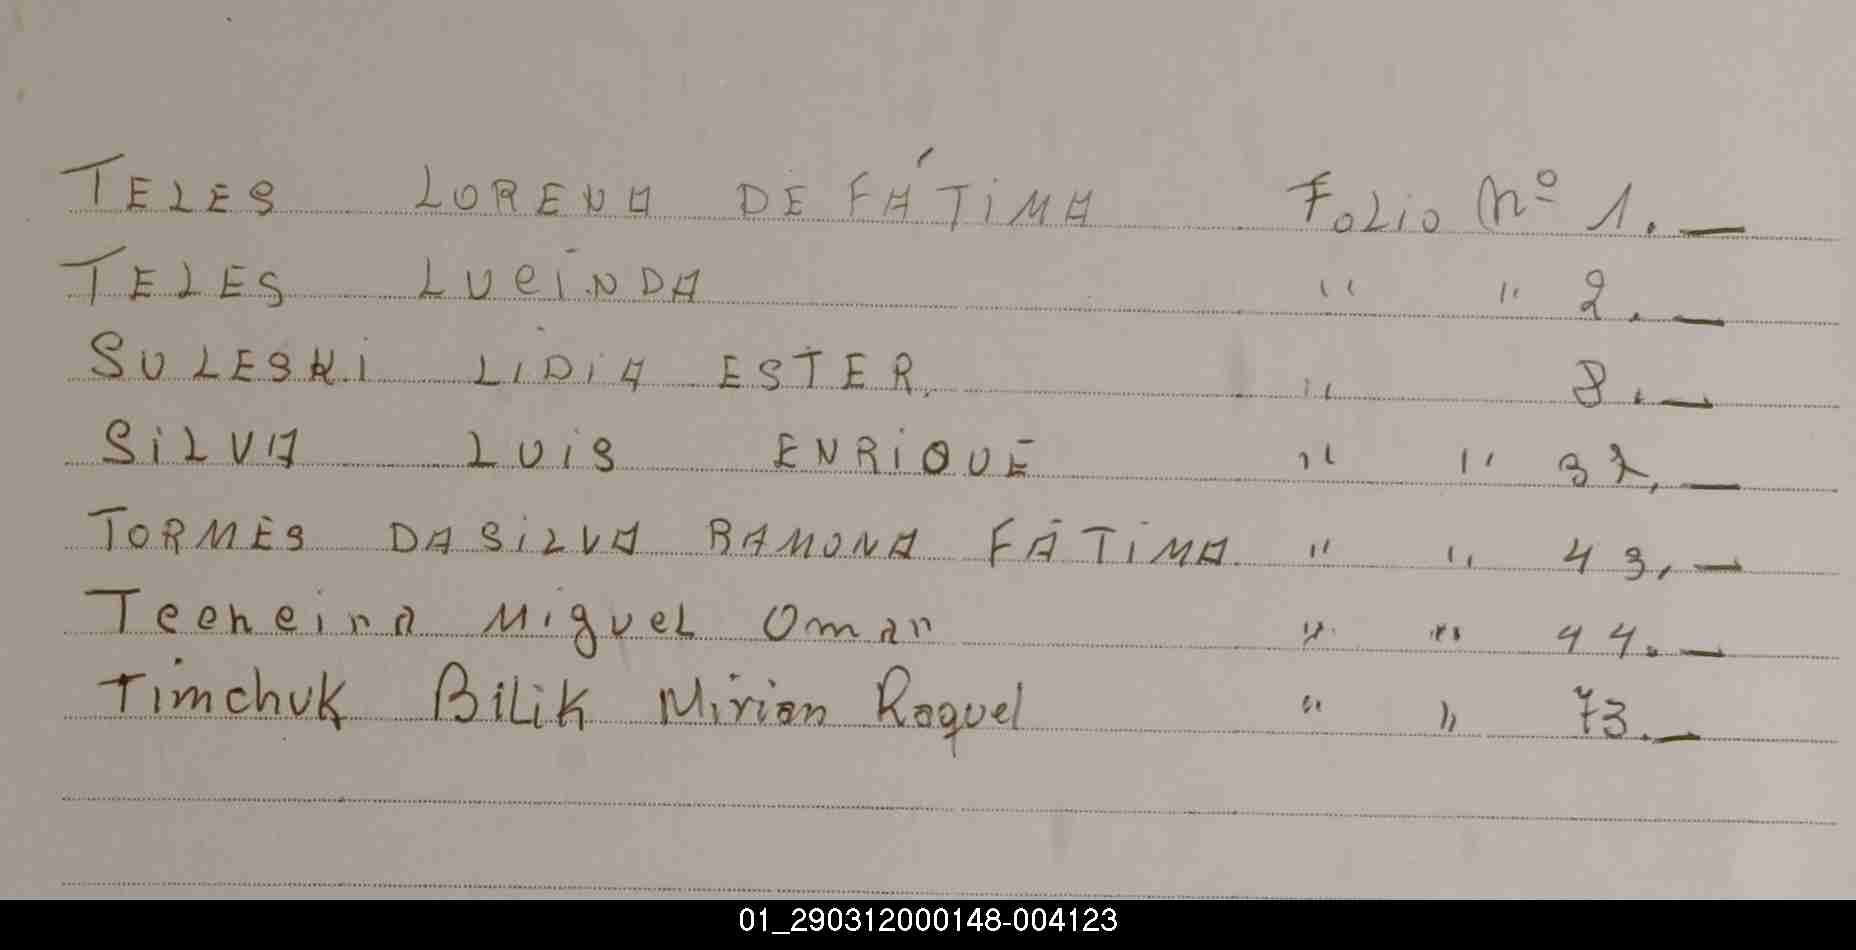 TELES LORENA DE FÁTIMA Folio Nº 1. —
TELES LUCINDA " " 2. —
SULESKI LIDIA ESTER. " 8. —
SILVA LUIS ENRIQUE " " 37. —
TORMES DA SILVA RAMONA FÁTIMA " " 43. —
Techeira Miguel Omar " " 44. —
Timchuk Bilik Mirian Raquel " " 73. —
01_290312000148-004123